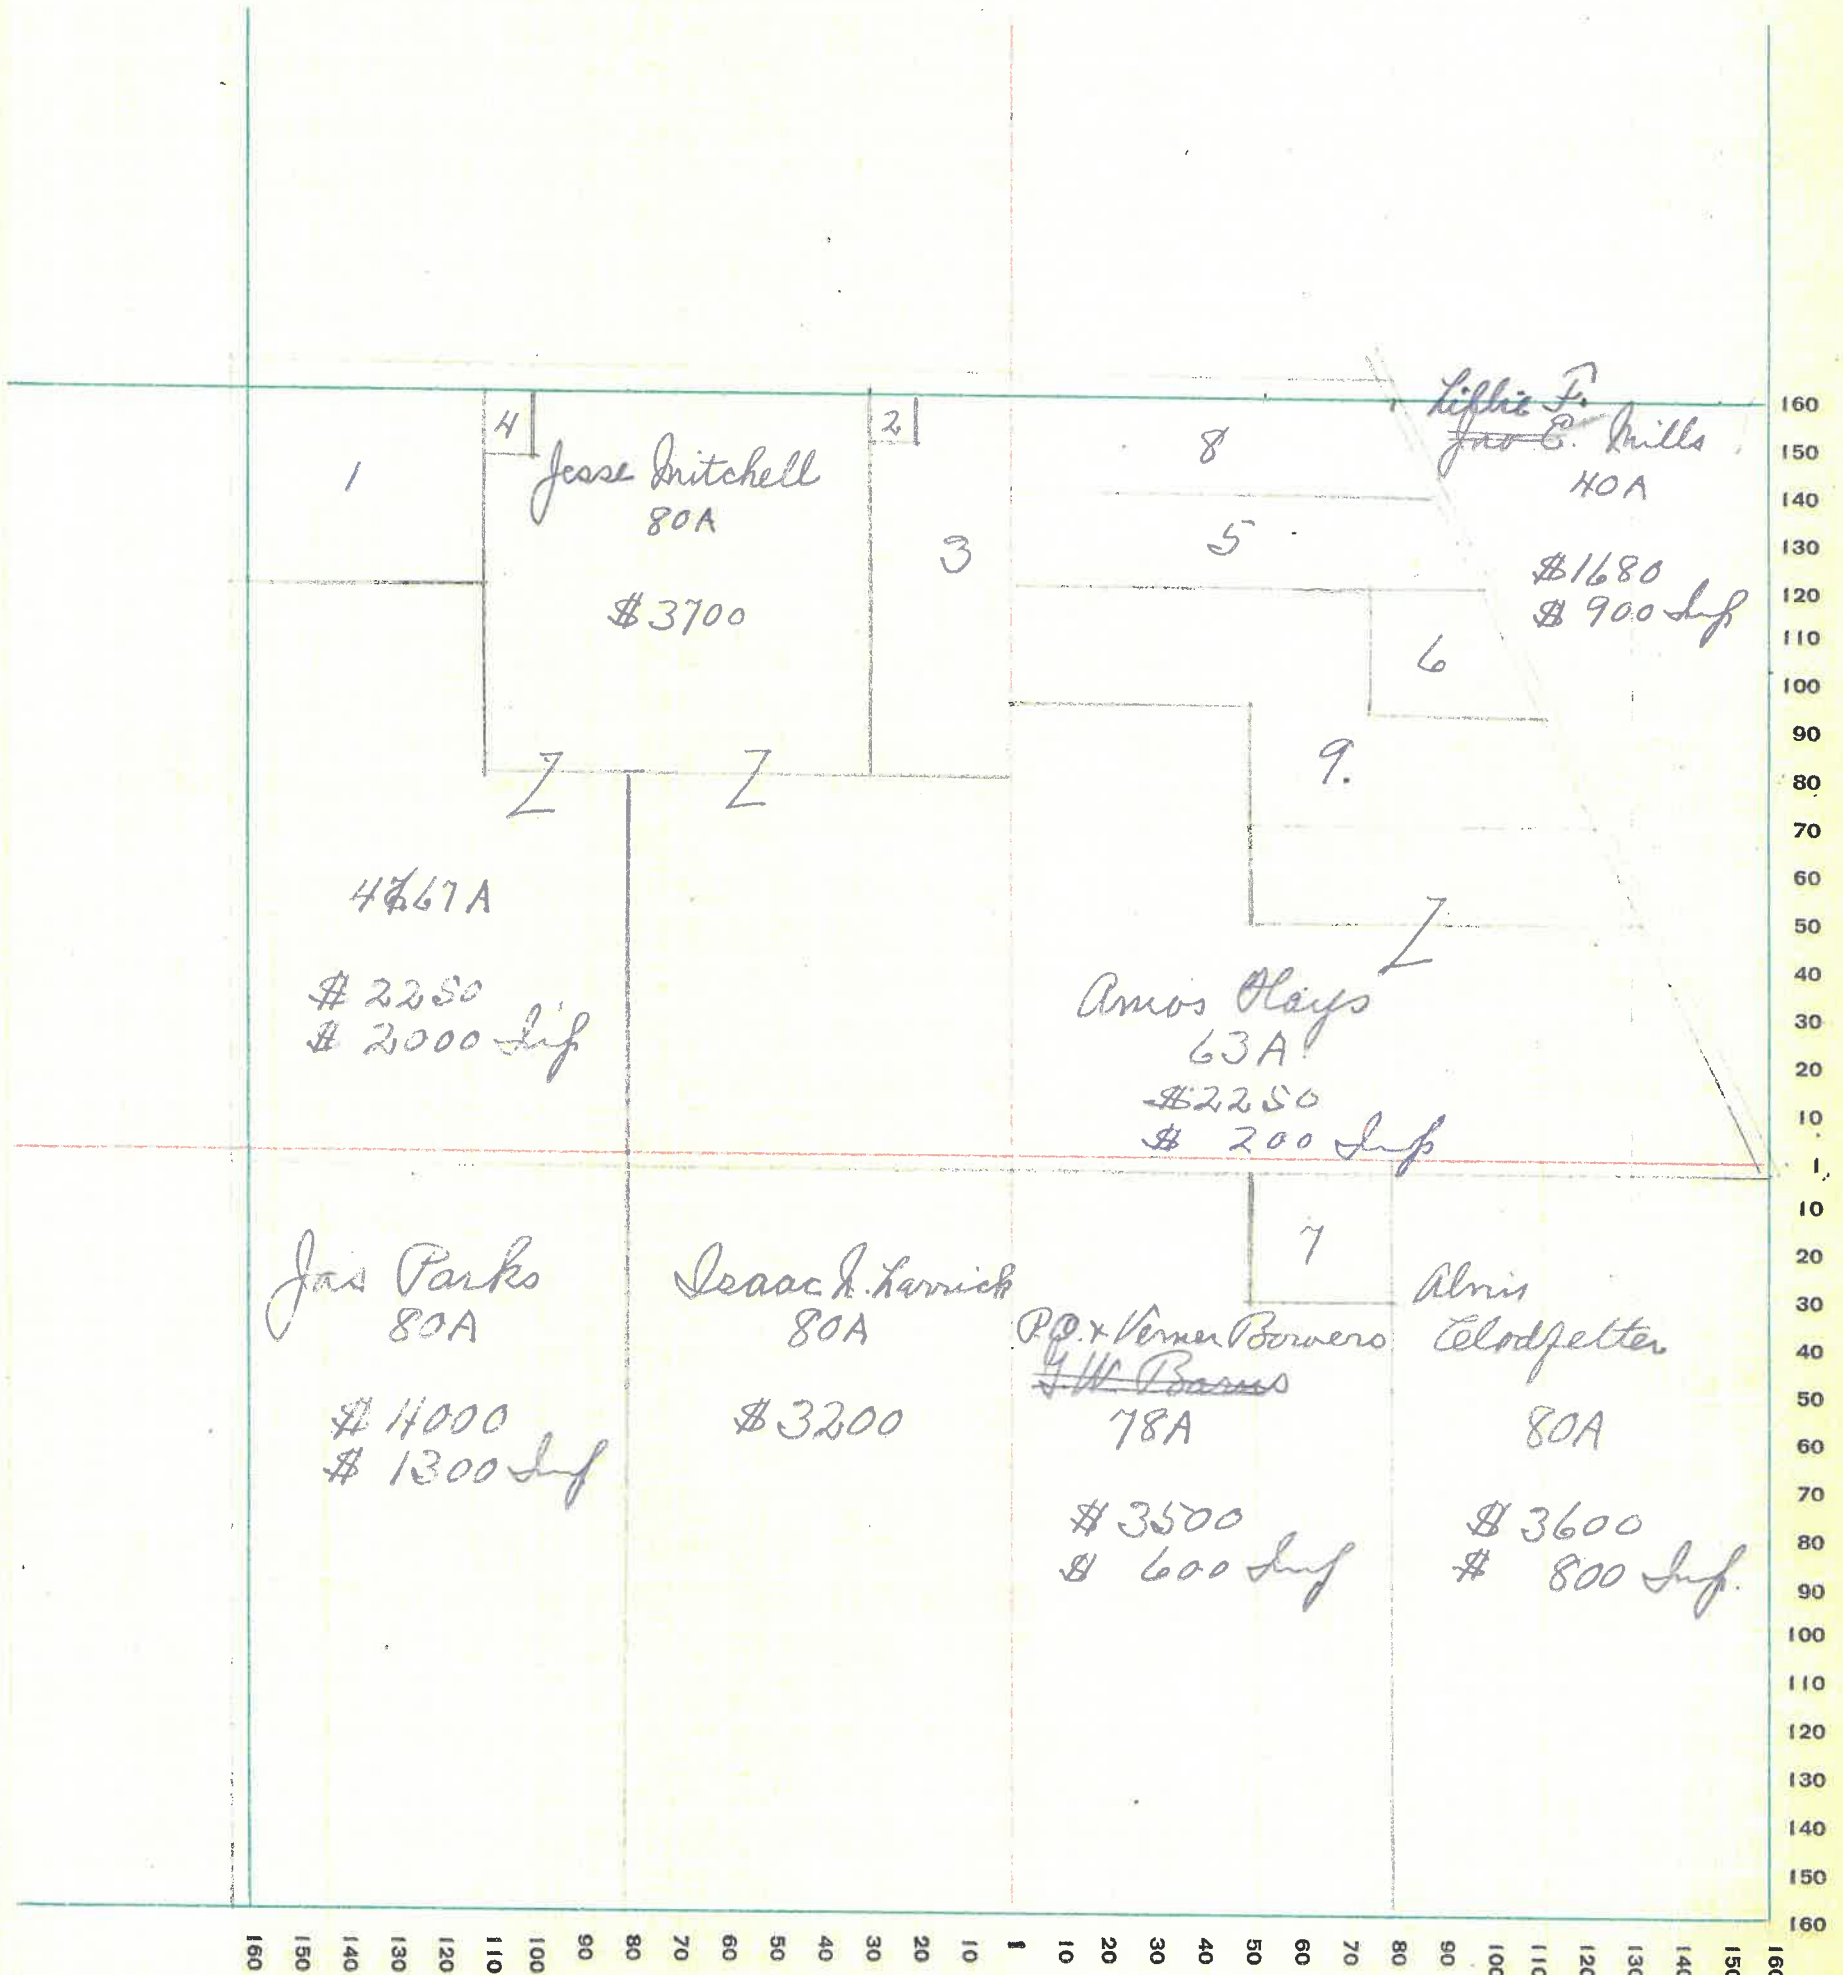 Lillie F.
Jno E. Mills
40A
$1680
$ 900 Imp
1
4
Jesse Mitchell
80A
$3700
2
3
8
5
6
9.
Z
Z
Z
67A
$2250
$2000 Imp
Amos Hays
63A
$2250
$ 200 Imp
7
Jas Parks
80A
$4000
$1300 Imp
Isaac N. Larrick
80A
$3200
P.O. & Verner Bowers
G.W. Barns
78A
$3500
$ 600 Imp
Almis
Clodfelter
80A
$3600
$ 800 Imp.
160
150
140
130
120
110
100
90
80
70
60
50
40
30
20
10
1
10
20
30
40
50
60
70
80
90
100
110
120
130
140
150
160
160 150 140 130 120 110 100 90 80 70 60 50 40 30 20 10 1 10 20 30 40 50 60 70 80 90 100 110 120 130 140 150 160